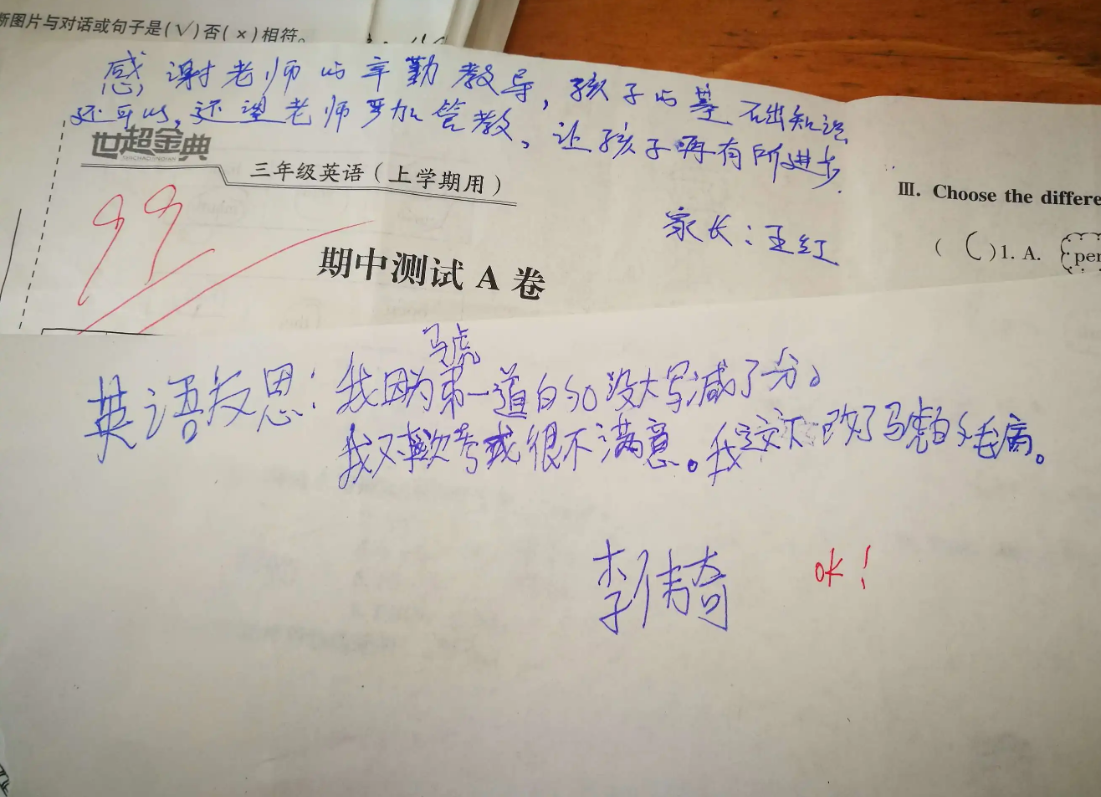 断图片与对话或句子是(√)否(×)相符。
感谢老师的辛勤教导，孩子的基础知识
还可以，还望老师严加管教。让孩子再有所进步.
世超金典
三年级英语（上学期用）
99
家长：王红
期中测试A卷
III. Choose the differe
( C )1. A. per
马虎
英语反思：我因为第一道的so没大写减了分。
我对这次考成很不满意。我改了马虎的毛病。
李伟琦
OK!